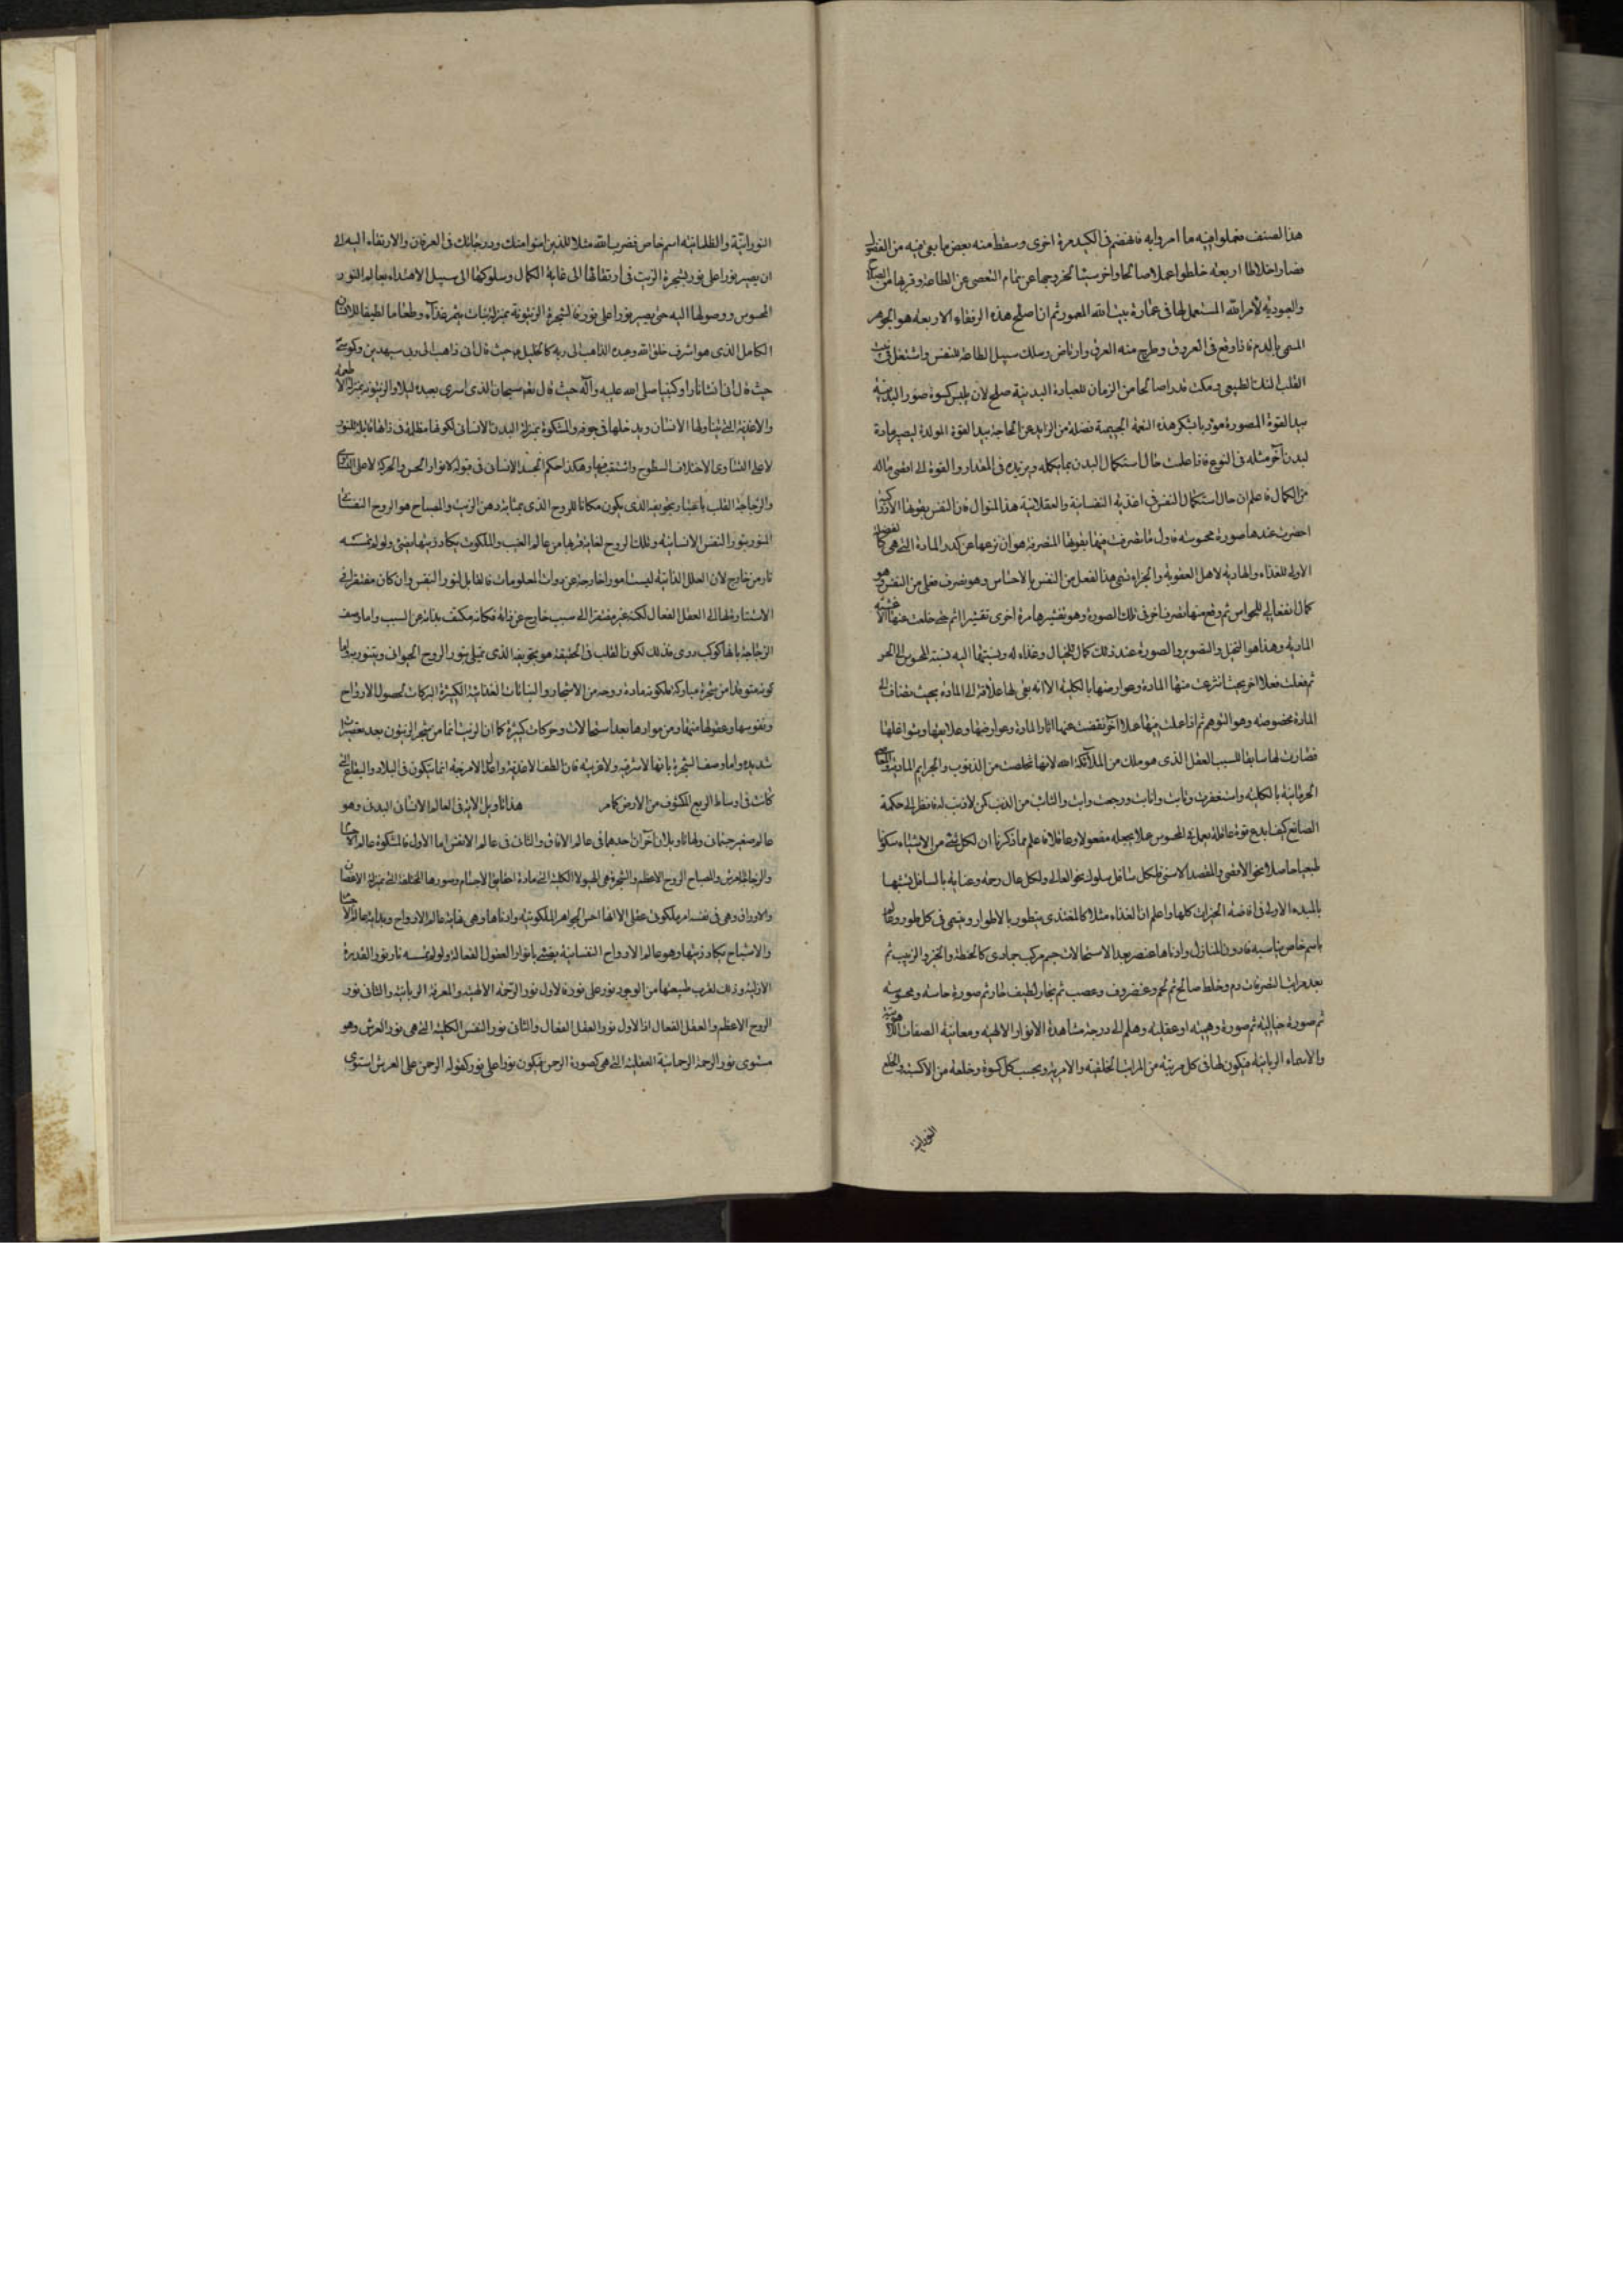 هذا الصنف فعملوا فيه ما امروا به فانهضم فى الكبد مرة اخرى وسقط منه بعض ما بقى فيه من الفضول
فصار اخلاطا اربعه خلطوا عملا صالحا واخر سيئا لخروجها عن تمام التعصى عن الطاعة وقربها من الصلاح
والعبودية لأمر الله المستعمل لها فى عمارة بيت الله المعمور ثم ان اصلح هذه الرفقاء الاربعه هو الجوهر
المسمى بالدم فاذا وقع فى العروق وطرح منه العرق وارتاض وسلك سبيل الطاعة للنفس واشتغل فى بيت
القلب لنسك الطبيعى ومكث قدرا صالحا من الزمان للعبادة البدنية صلح لان يلبس كسوة صور البدنية
بيد القوة المصورة مؤديا بشكر هذه النعمة الجسيمة فضلة من الزايد عن الحاجة بيد القوة المولدة ليصير مادة
لبدن آخر مثله فى النوع فاذا علمت حال استكمال البدن بما يكمله ويزيده فى المقدار والقوة الى اقصى ماله
من الكمال فاعلم ان حال استكمال النفس فى اغذيه النفسانية والعقلانية هذا المنوال فان النفس بقوتها
احضرت عندها صورة محسوسه فاول ما تصرفت فيها بقوتها المتصرفة هو ان نزعها عن كدر المادة التى هى
الاولى للغذاء والهاوية لاهل العقوبة والجزاء فسمى هذا الفعل من النفس بالاحساس وهو تصرف فعلى من النفس وهو
كمال انفعالى للحواس ثم وقع منها تصرف آخر فى تلك الصورة وهو تقشيرها مرة اخرى تقشيرا اتم حتى خلعت عنها الاغشية
المادية وهذا هو التخيل والتصوير والصورة عند ذلك كمال للخيال وغذاء له ونسبتها اليه نسبة المحسوس الى الحس
ثم فعلت فعلا اخر بحيث انتزعت منها المادة وعوارضها بالكلية الا انه بقى لها علاقة الى المادة بحيث مضاف الى
المادة مخصوصه وهو التوهم ثم اذا عملت فيها عملا آخر نقضت عنها آثار المادة وعوارضها وعلايقها وشواغلها
فصارت لها سابقا للسبب العقل الذى هو ملك من الملآئكة الله لانها تخلصت من الذنوب والجرايم المادية
الجرمانية بالكلية واستغفرت وتابت وانابت ورجعت وابت والتائب من الذنب كمن لا ذنب له فانظر الى حكمة
الصانع كيف ابدع قوة عاقلة يعمل فى المحسوس عملا يجعله معقولا وعاقلا فاعلم مما ذكرنا ان لكل شئ من الاشياء سلوكا
طبيعيا حاصلا نحو الاقصى والمقصد الاسنى فلكل سافل سلوك نحو العالى ولكل عال رحمة وعناية بالسافل تشبها
بالمبدء الاول فى افاضة الخيرات كلها واعلم ان الغذاء مثلا كالمغتذى يتطور بالاطوار ويسمى فى كل طور
باسم خاص يناسبه فادون المنازل وادناها عنصر بعد الاستحالات جسم مركب جمادى كالحنطة والخبز والزبيب ثم
بعد مراتب التصرفات دم وخلط صالح ثم لحم وغضروف وعصب ثم بخار لطيف حار ثم صورة حاسة ومحسوسه
ثم صورة خيالية ثم صورة وهمية او عقلية وهلم الى درجة مشاهدة الانوار الالهيه ومعاينة الصفات
والاسماء الربانية فيكون لها فى كل مرتبة من المراتب الخلقية والامرية وبحسب كل كسوة وخلعة من الاكسية والخلع
النورانية
النورانية والظلمانية اسم خاص فضرب الله مثلا للذين امنوا منك ودرجاتك فى العرفان والارتقاء اليه الى
ان يصير نورا على نور بشجرة الزيت فى ارتقائها الى غاية الكمال وسلوكها الى سبيل الاهتداء بعالم النور
المحسوس ووصولها اليه حتى يصير نورا على نور فالشجرة الزيتونة بمنزلة نبات يثمر غذآء وطعاما لطيفا للانسان
الكامل الذى هو اشرف خلق الله وعبده الذاهب الى ربه كالخليل حيث قال انى ذاهب الى ربى سيهدين وكموسى
حيث قال انى انست نارا وكنبينا صلى الله عليه وآله حيث قال نعم سبحان الذى اسرى بعبده ليلا والزيتونة بمنزلة
والاغذية التى يتناولها الانسان ويدخلها فى جوفه والمشكوة بمنزلة البدن الانسانى لكونها مظلمة فى ذاتها قابلة للنور
لا على التساوى لاختلاف السطوح والثقب فيها وهكذا حكم الجسد الانسانى فى قبوله لانوار الحس والحركة لا على التساوى
والزجاجة القلب باعتبار تجويفه الذى يكون مكانا للروح الذى بمثابة دهن الزيت والمصباح هو الروح النفسانى
المنور بنور النفس الانسانية وتلك الروح لغاية قربها من عالم الغيب والملكوت يكاد زيتها يضئ ولو لم تمسسه
نار من خارج لان العلل الذاتية ليست امورا خارجة عن ذوات المعلومات فالقابل لنور النفس وان كان مفتقرا فى
الاستنارة لها الى العقل الفعال لكنه غير مفتقر الى سبب خارج عن ذاته فكانه مكتف بذاته عن السبب واما وصف
الزجاجة بانها كوكب درى فذلك لكون القلب فى الحقيقة هو تجويفه الذى تمتلى بنور الروح الحيوانى ويتنور به واما
كونه متوقدا من شجرة مباركة فلكونه مادة روحه من الاشجار والنباتات الغذائية الكثيرة البركات لحصول الارواح
ونفوسها وعقولها منها ومن موادها بعد استحالات وحركات كثيرة كما ان الزيت انما من شجر الزيتون بعد
شديدة واما وصف الشجرة بانها لا شرقية ولا غربية فان الطف الاغذية واعدل الامزجة انما يتكون فى البلاد والبقاع التى
كانت فى اوساط الربع المكشوف من الارض كما مر هذا تاويل الاية فى العالم الانسانى البدنى وهو
عالم صغير جسمانى ولها تاويلان آخران احدهما فى عالم الافاق والثانى فى عالم الانفس اما الاول فالمشكوة عالم الاجسام
والزجاجة العرش والمصباح الروح الاعظم والشجرة هى الهيولا الكلية التى مادة حقايق الاجسام وصورها المختلفة التى بمنزلة الاغصان
والاوراق وهى فى نفسه امر ملكوتى عقلى الا انها اخس الجواهر الملكوتية وادناها وهى نهاية عالم الارواح وبداية عالم الاجسام
والاشباح يكاد زيتها وهو عالم الارواح النفسانية يضئ بانوار العقول الفعالة ولو لم تمسسه نار نور القدرة
الازلية وذلك لقرب طبيعتها من الوجود نور على نور فالاول نور الرحمة الالهية والمعرفة الربانية والثانى نور
الروح الاعظم والعقل الفعال اذ الاول نور العقل الفعال والثانى نور النفس الكلية التى هى نور العرش وهو
مستوى نور الرحمة الرحمانية العقلية التى هى كصورة الرحمن فيكون نورا على نور كقوله الرحمن على العرش استوى